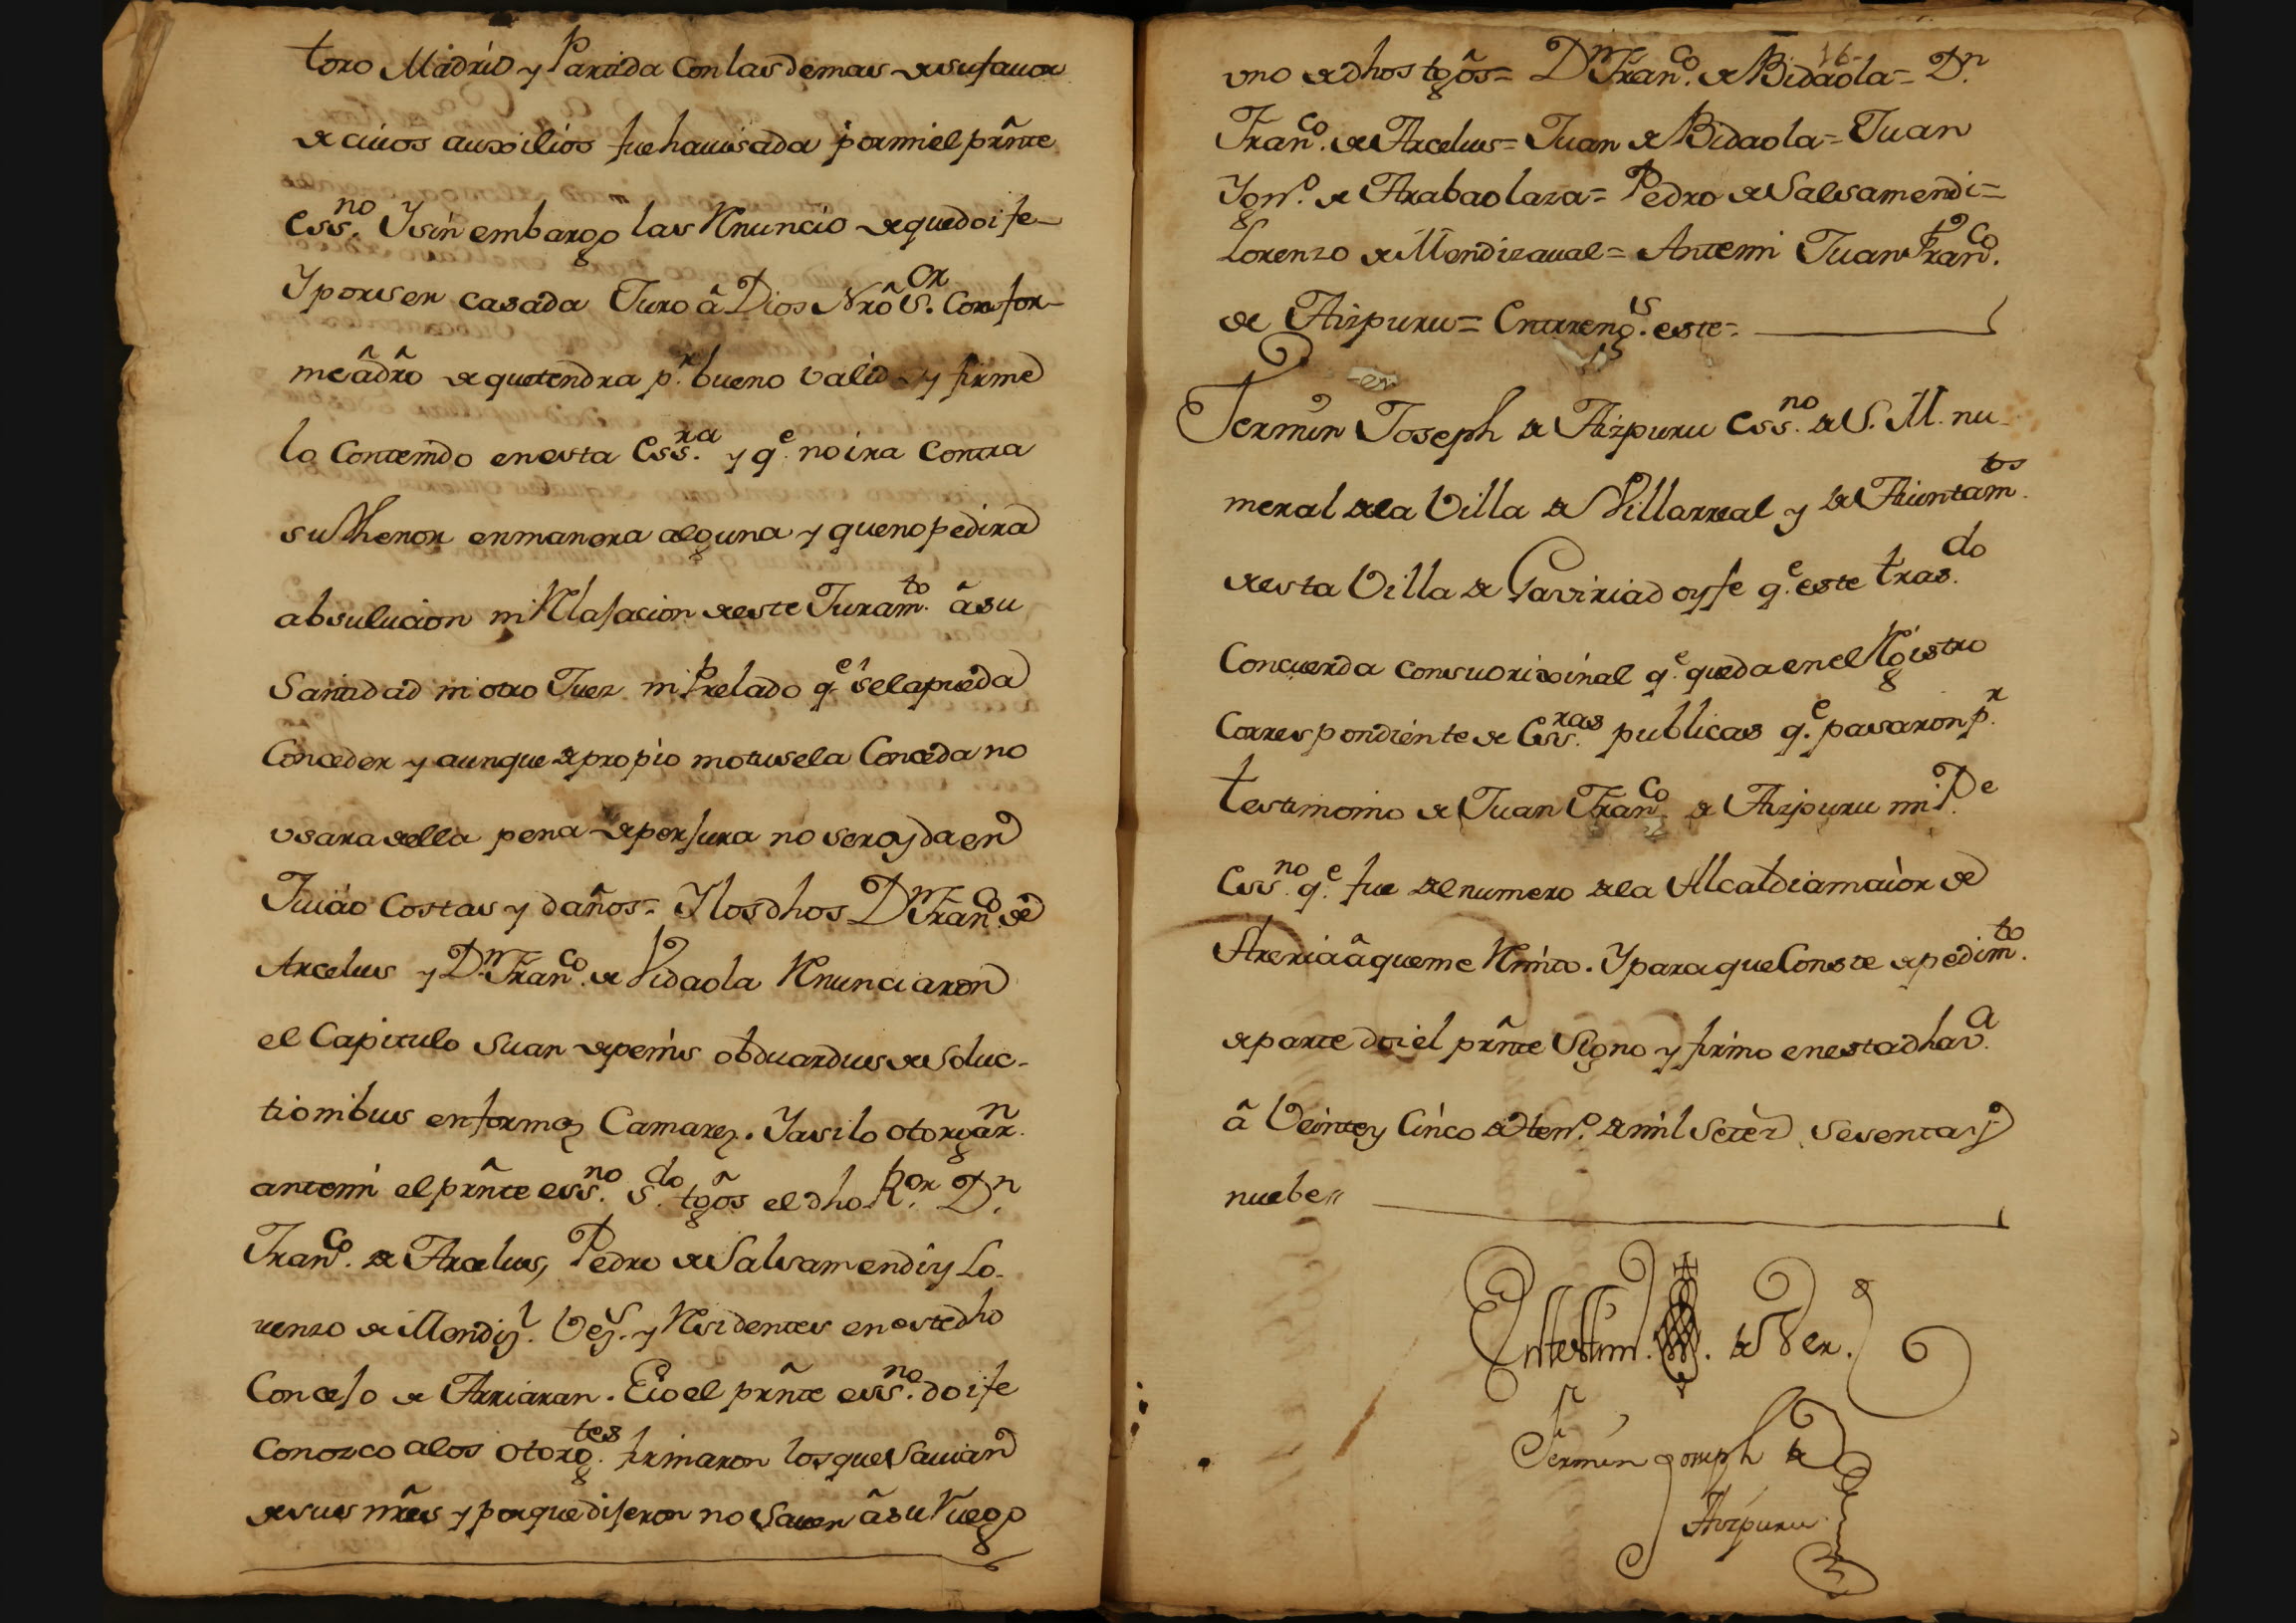 toro Madrid y Partida con las demas de su fauor
de cuios auxilios fue hauisada por mi el prñte
Essno. Y sin embargo las Renuncio de que doi fe
Y por ser casada Juro â Dios Nrô Sor. Confor-
me âdrô de que tendra pr. bueno valido y firme
lo Contenido en esta Essra. y qe. no ira Contra
su thenor en manera alguna y que no pedira
absulucion ni Relajacion de este Juramto. â su
Santidad ni otro Juez ni Prelado qe. se la pueda
Conceder y aunque de propio motu se la Conceda no
usara de ella pena de perjura no ser oyda en
Juicio Costas y daños= Y los dhos Dn. Franco. de
Arcelus y Dn. Franco. de Vidaola Renunciaron
el Capitulo Suan de penis obduardus de Soluc-
tionibus en forma Camarez. Y asi lo otorgarn.
ante mi el prñte essno. sdo. tgôs el dho Ror. Dn.
Franco. de Arcelus, Pedro de Salsamendi y Lo-
renzo de Mendizl. Vezs. y Residentes en este dho
Concejo de Arriaran. E io el prñte essno. doi fe
Conozco a los otorgtes. firmaron los que Sauian
de sus nrês y por que dijeron no Sauer â su Ruego
16
uno de dhos tgôs= Dn. Franco. de Bidaola= Dn.
Franco. de Arcelus= Juan de Bidaola= Juan
Ygno. de Arabaolaza= Pedro de Salsamendi=
Lorenzo de Mendizaual= Ante mi Juan Franco.
de Aizpuru= Entrrengs. este=
Fermin Joseph de Aizpuru Essno. de S. M. nu-
meral de la Villa de Villarreal y de Aiuntamtos.
de esta Villa de Gaviria doy fe qe. este trasdo.
Concuerda con su orixinal qe. queda en el Rexistro
Correspondiente de Essras. publicas qe. pasaron pr.
testimonio de Juan Franco. de Aizpuru mi Pe.
Essno. qe. fue del numero de la Alcaldia maior de
Areria â que me Rmito. Y para que Conste de pedimto.
de parte doi el prñte Signo y firmo en esta dha Va.
â Veinte y Cinco de Hen[o]. de mil Setez. sesenta y
nuebe//
En testim. de Ver.
Fermin Joseph de
Aizpuru